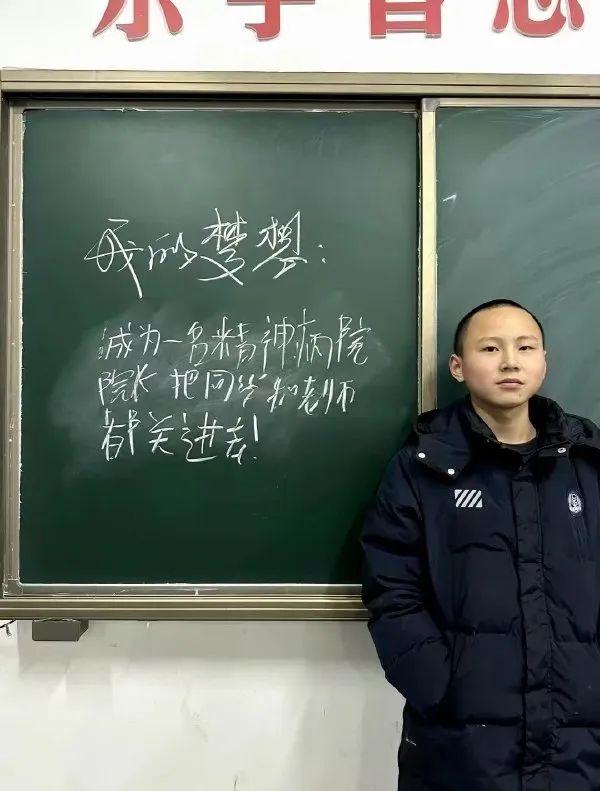 我的梦想:
成为一名精神病院
院长 把同学和老师
都关进去!